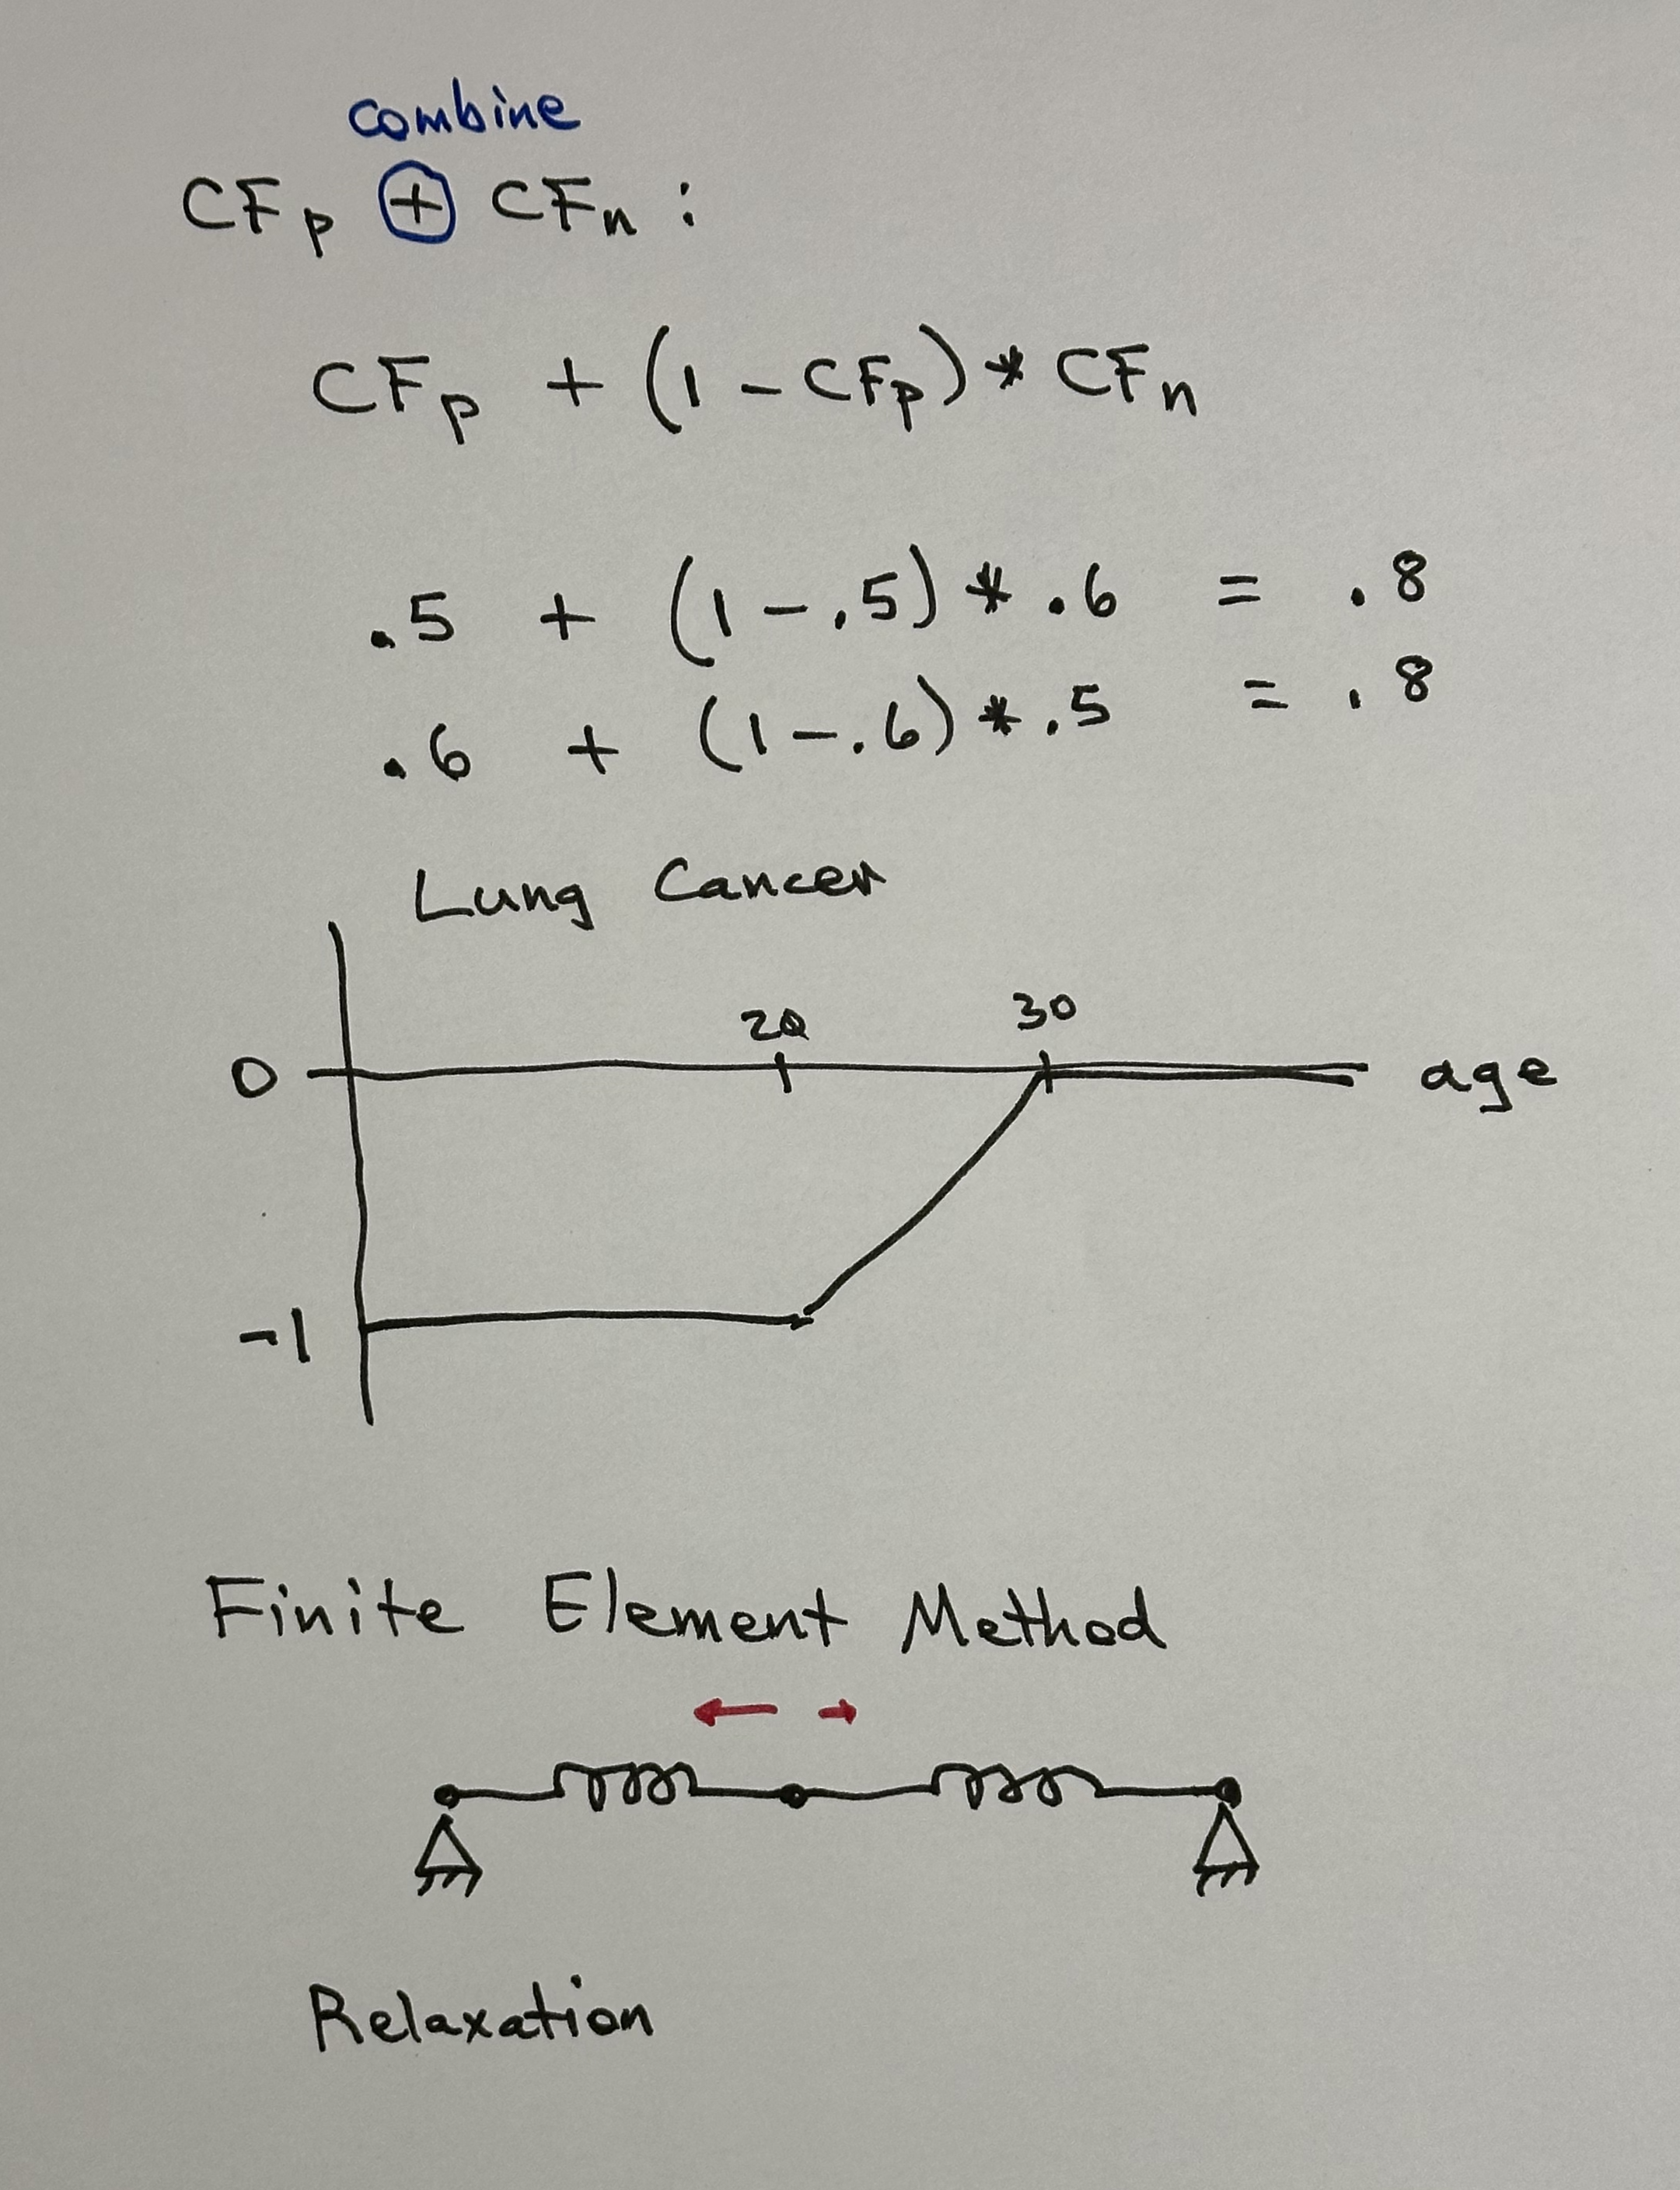 combine
CFp ⊕ CFn :
CFp + (1 - CFp) * CFn
.5 + (1 - .5) * .6 = .8
.6 + (1 - .6) * .5 = .8
Lung Cancer
20 30
0 age
-1
Finite Element Method
Relaxation